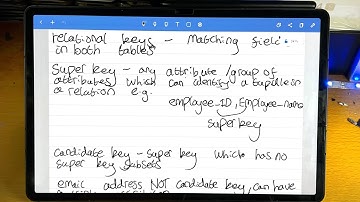 relational keys - Matching field
in both tables
Super key - any attribute/group of
attributes which can identify a tuple in
a relation e.g.
employee_ID, Employee_name
superkey
candidate key - super key which has no
super key subsets
email address NOT candidate key, can have